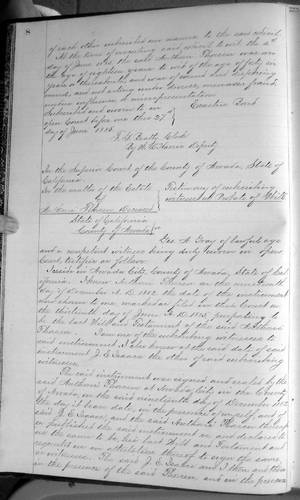 8
of each other subscribed our names to the said
At the time of executing said
day of June 1885, the said Anthony Therein was over
the age of eighteen years to wit of the age of fifty
years or thereabouts, and was of sound and disposing
mind, and not acting under duress, menace, fraud,
undue influence or misrepresentation
Subscribed and sworn to in
open Court before me this 27
day of June 1885.
J. G. Beatty Clerk
Deputy.
In the Superior Court of the County of Nevada, State of
California.
In the matter of the Estate
of
Deceased
Testimony of subscribing
witness on Probate of Will
State of California
County of Nevada
Geo. A. Gray of lawful age
and a competent witness being duly sworn in open
Court, testifies as follows
I reside in Nevada City, County of Nevada, State of Cal
ifornia. I knew Anthony Therein on the nineteenth
day of December A.D. 1882, the date of the instrument
now shown to me, marked as filed in this Court on
the thirteenth day of June A.D. 1885, purporting to
be the last Will and Testament of the said Anthony
Therein. I am one of the subscribing witnesses to
said instrument. I also knew at the said date of said
instrument J. E. Isaacs the other of said subscribing
witnesses.
The said instrument was signed and sealed by the
said Anthony Therein at Nevada City in the County
of Nevada, on the said nineteenth day of December, 1882
the day it bears date, in the presence of myself and of
said J. E. Isaacs, and the said Anthony Therein there
upon published the said instrument and declared
the same to be, his last Will and Testament and
requested us in attestation thereof to sign the same
as witnesses. The said J. E. Isaacs and I then and there
in the presence of the said Therein and in the presence